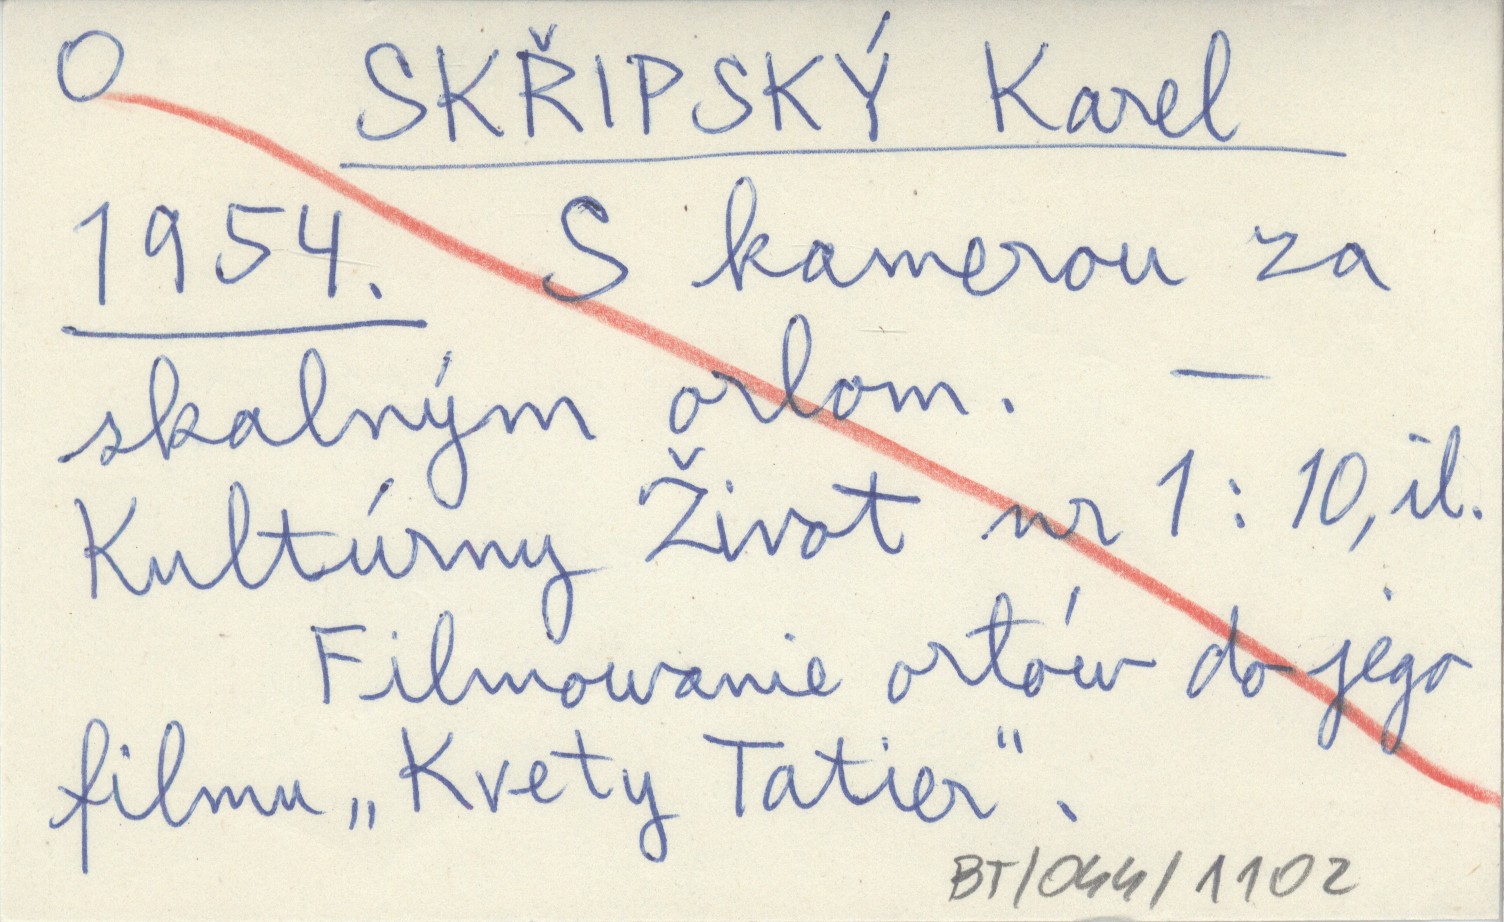 O SKŘIPSKÝ Karel
1954. S kamerou za
skalným orlom. —
Kultúrny Život nr 1 : 10, il.
Filmowanie orłów do jego
filmu „Kvety Tatier“.
BT/044/1102